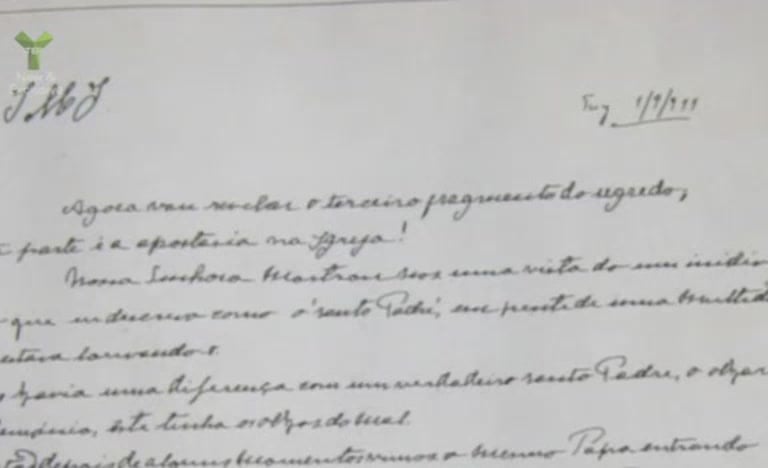 J M J
Tuy 1/9/944
Agora vou revelar o terceiro fragmento do segredo;
parte é a apostasia na Igreja!
Nossa Senhora mostrou nos uma vista do um
que como o 'santo Padre', em frente de uma
estava louvando o.
Havia uma diferença com um verdadeiro santo Padre, o
este tinha os olhos do mal.
depois de alguns momentos vimos o mesmo Papa entrando